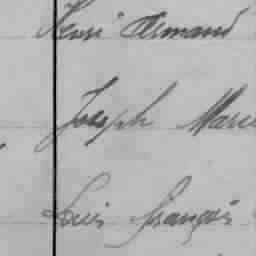 Henri Armand
Joseph Marie
Louis François